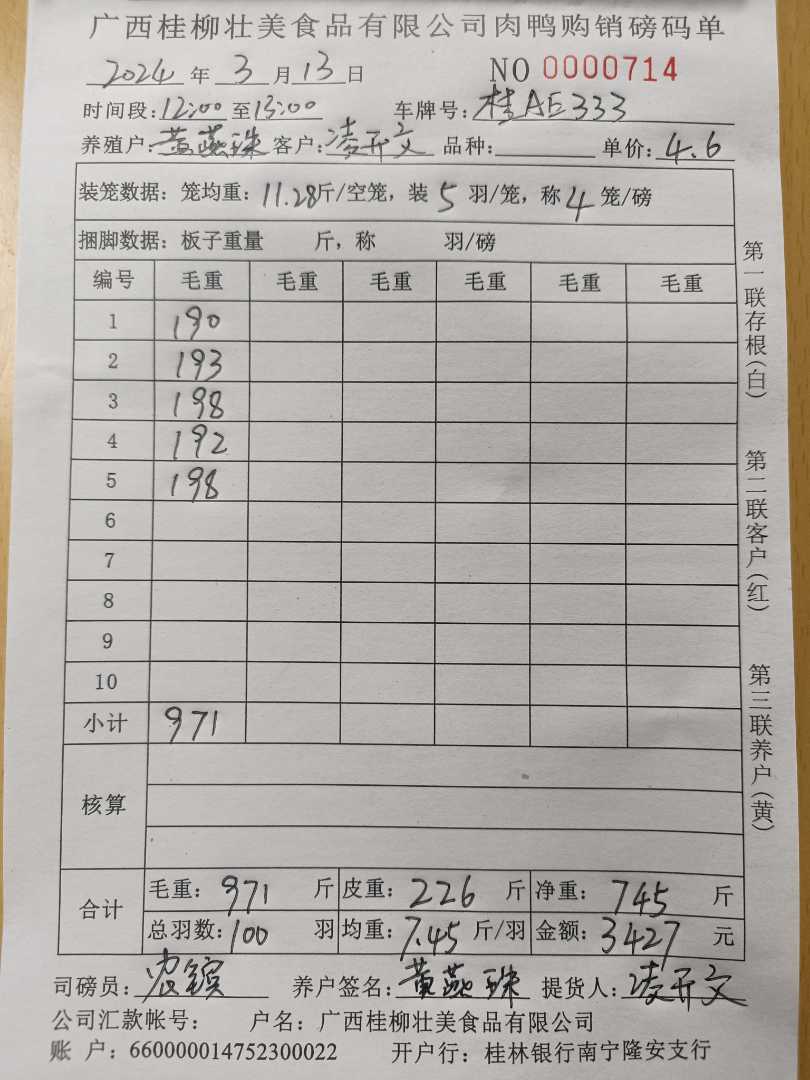 广西桂柳壮美食品有限公司肉鸭购销磅码单
2024 年 3 月 13 日 NO 0000714
时间段: 12:00 至 13:00 车牌号: 桂AE333
养殖户: 黄燕珠 客户: 凌开文 品种: 单价: 4.6
装笼数据: 笼均重: 11.28斤/空笼, 装 5 羽/笼, 称 4 笼/磅
捆脚数据: 板子重量 斤, 称 羽/磅
编号 毛重 毛重 毛重 毛重 毛重 毛重
1 190
2 193
3 198
4 192
5 198
6
7
8
9
10
小计 971
核算
合计 毛重: 971 斤 皮重: 226 斤 净重: 745 斤
总羽数: 100 羽 均重: 7.45 斤/羽 金额: 3427 元
司磅员: 农镔 养户签名: 黄燕珠 提货人: 凌开文
公司汇款帐号: 户名: 广西桂柳壮美食品有限公司
账 户: 660000014752300022 开户行: 桂林银行南宁隆安支行
第一联存根(白)
第二联客户(红)
第三联养户(黄)